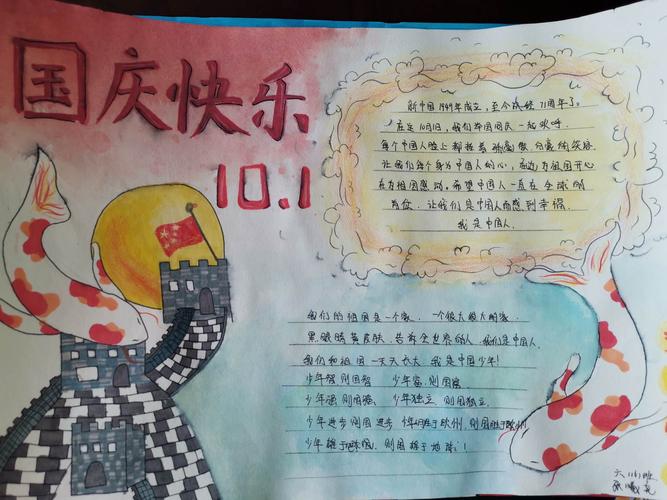 国庆快乐
10.1
新中国1949年成立，至今成经71周年了。
在这10月1日，我们举国国民一起欢呼.
每个中国人脸上都挂着骄傲
让我们每个身为中国人的心，为祖国开心
在为祖国感动，希望中国人一直在全球的
首位.让我们是中国人而感到幸福.
我是中国人.
我们的祖国是一个家、一个很大很大的家.
黑眼睛黄皮肤.告诉全世界的人.我们是中国人.
我们和祖国一天天长大.我是中国少年！
少年智则国智 少年富则国富
少年强则国强、少年独立则国独立.
少年进步则国进步 少年胜于欧州，则国胜于欧州
少年雄于地球，则国雄于地球！